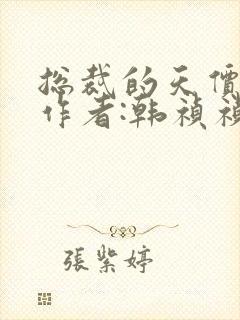 總裁的天價
作者:韩禎禎
張紫婷